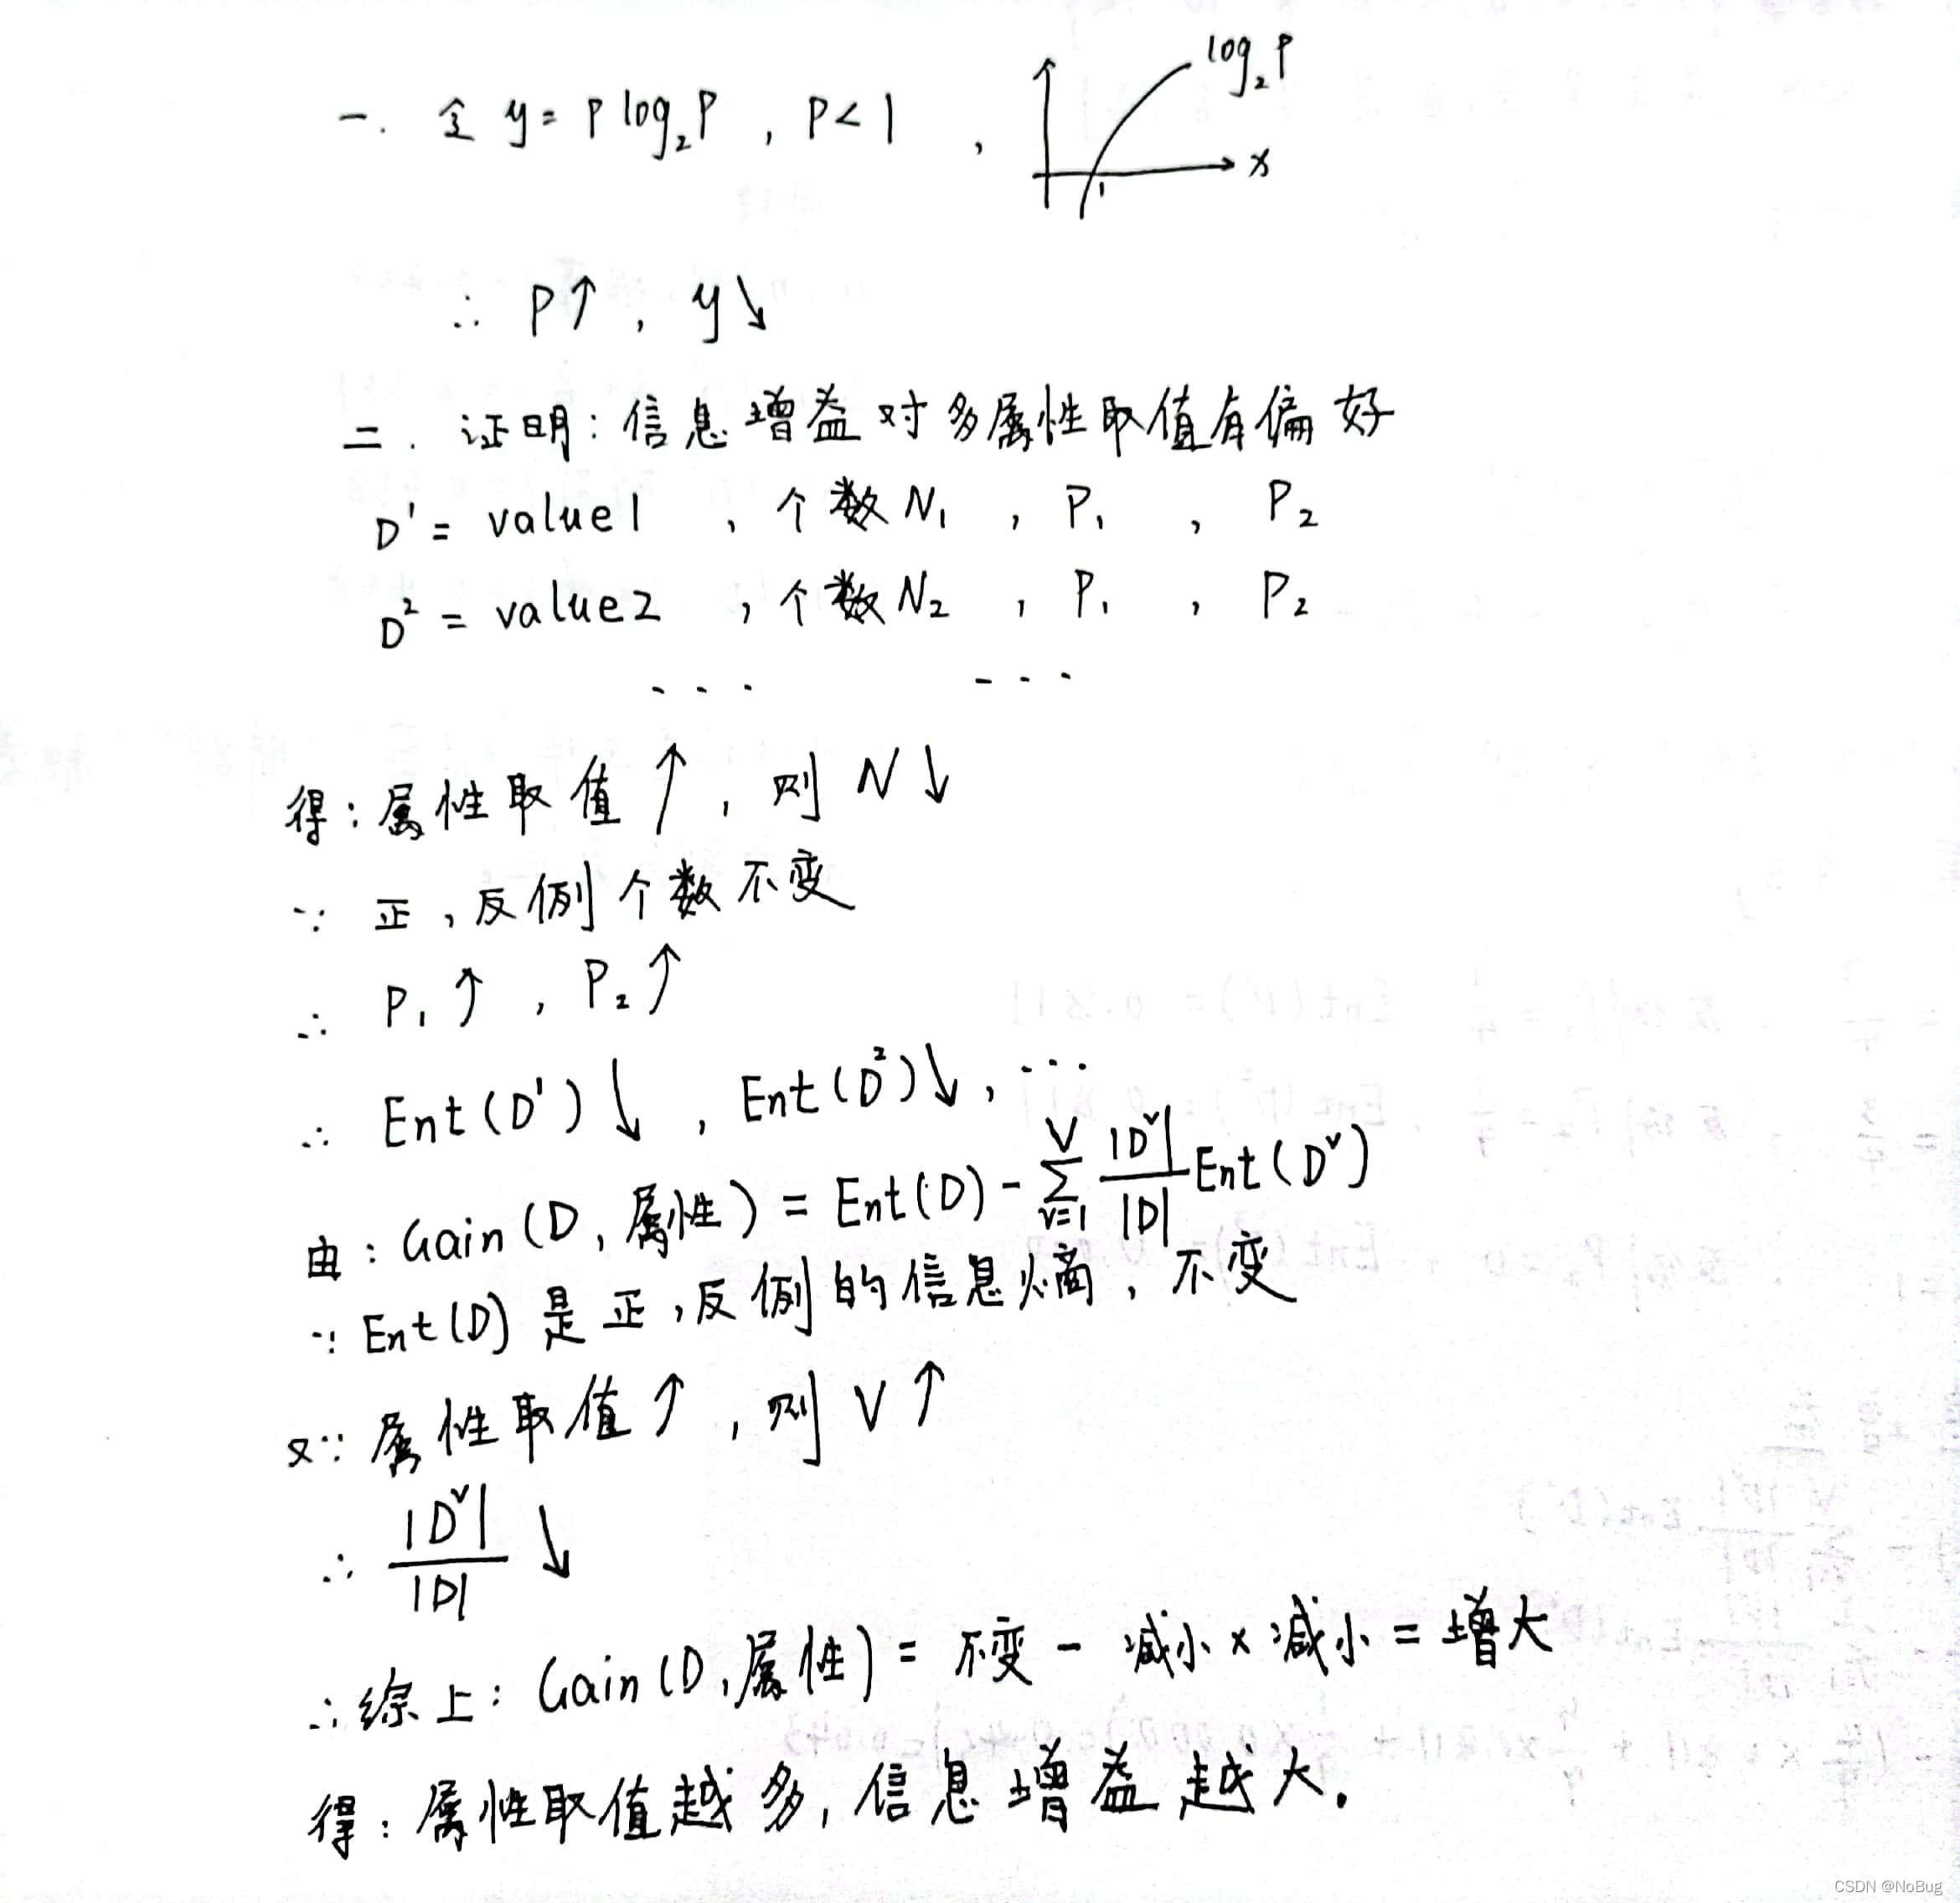 一. 令 y = P log₂P , P < 1 ,
log₂P
x
1
∴ P↑ , y↓
二. 证明: 信息增益对多属性取值有偏好
D¹ = value1 , 个数N₁ , P₁ , P₂
D² = value2 , 个数N₂ , P₁ , P₂
... ...
得: 属性取值↑ , 则N↓
∵ 正, 反例个数不变
∴ P₁↑ , P₂↑
∴ Ent(D¹)↓ , Ent(D²)↓, ...
由: Gain(D, 属性) = Ent(D) - ∑_{v=1}^{V} |Dᵛ|/|D| Ent(Dᵛ)
∵ Ent(D) 是正, 反例的信息熵, 不变
又∵ 属性取值↑ , 则V↑
∴ |Dᵛ|/|D| ↓
∴ 综上: Gain(D, 属性) = 不变 - 减小 x 减小 = 增大
得: 属性取值越多, 信息增益越大.
CSDN @NoBug